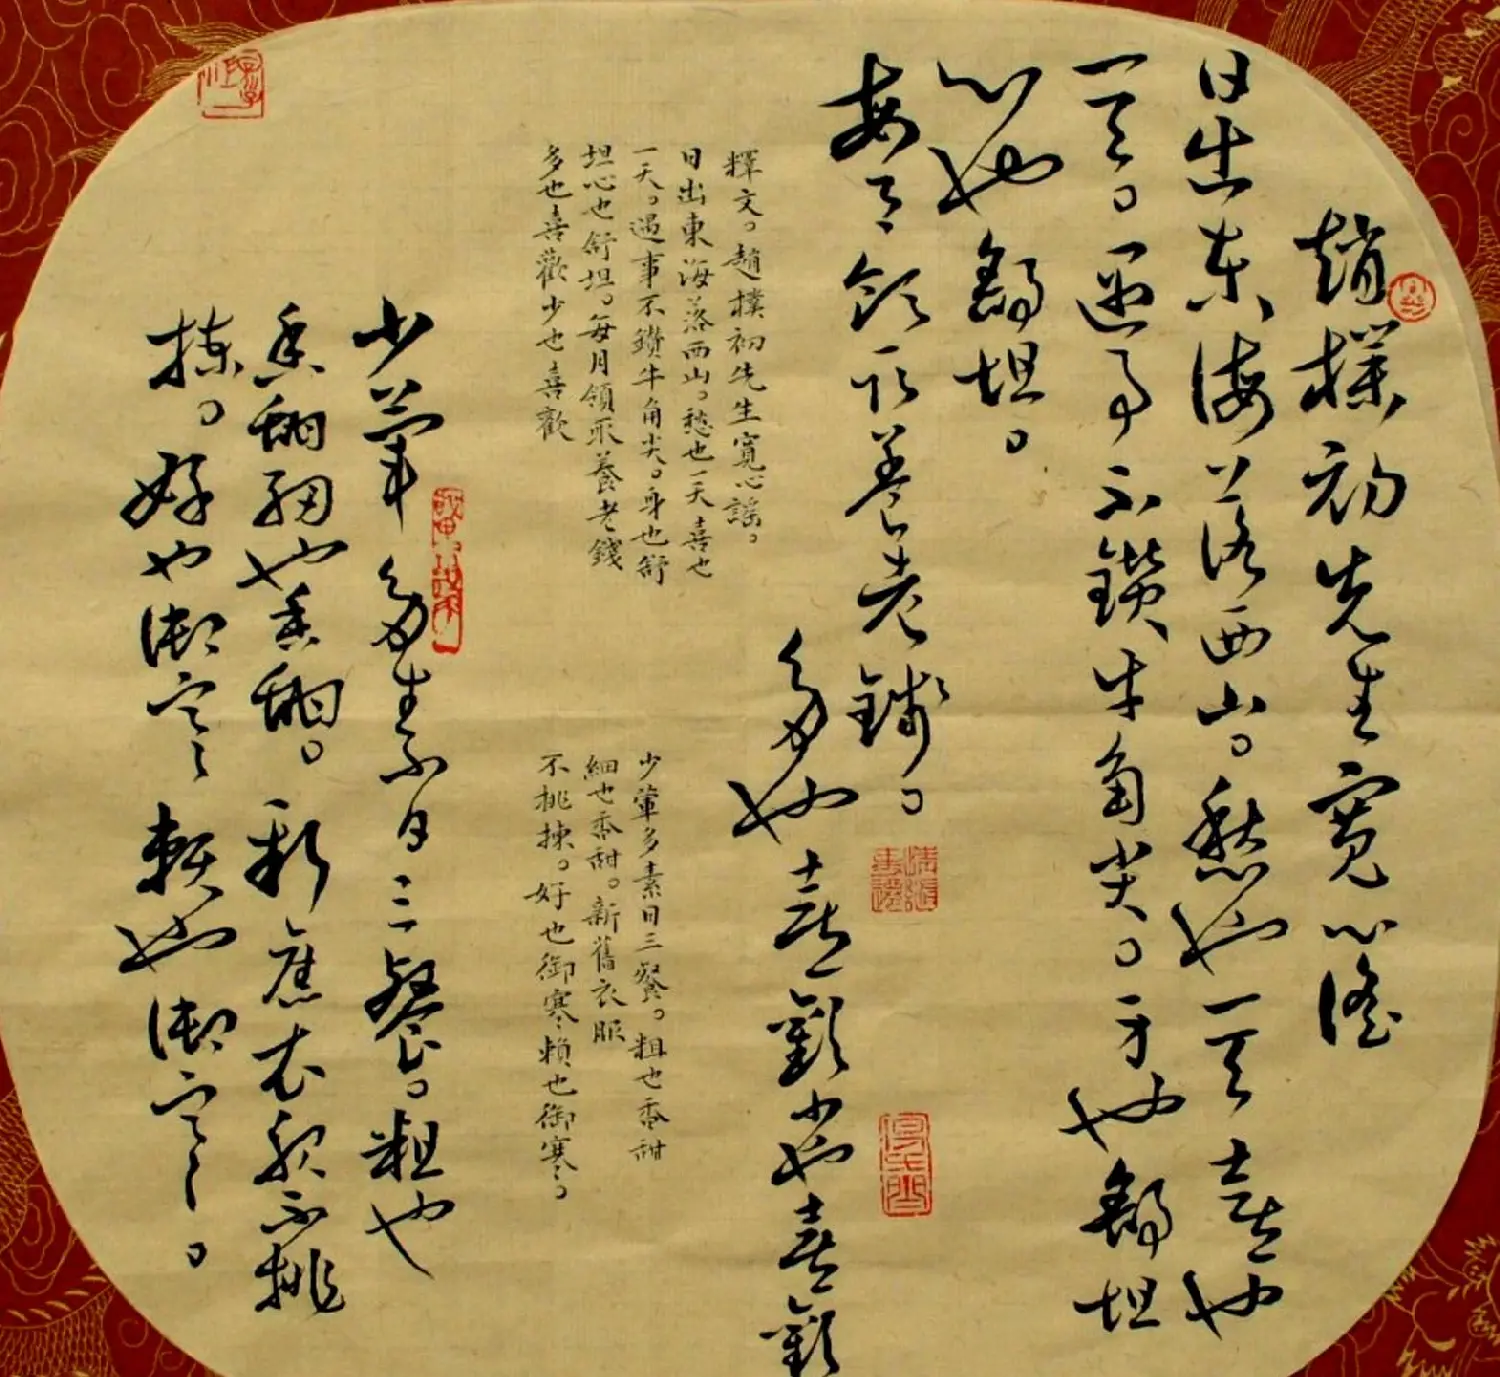 趙樸初先生寬心謠
日出東海落西山。愁也一天喜也
一天。遇事不鑽牛角尖。身也舒坦
心也舒坦。
每月領取養老錢。
多也喜歡少也喜歡
釋文。趙樸初先生寬心謠。
日出東海落西山。愁也一天喜也
一天。遇事不鑽牛角尖。身也舒
坦心也舒坦。每月領取養老錢
多也喜歡少也喜歡
少葷多素日三餐。粗也香甜
細也香甜。新舊衣服
不挑揀。好也御寒賴也御寒。
少葷多素日三餐。粗也
香甜細也香甜。新舊衣服不挑
揀。好也御寒賴也御寒。